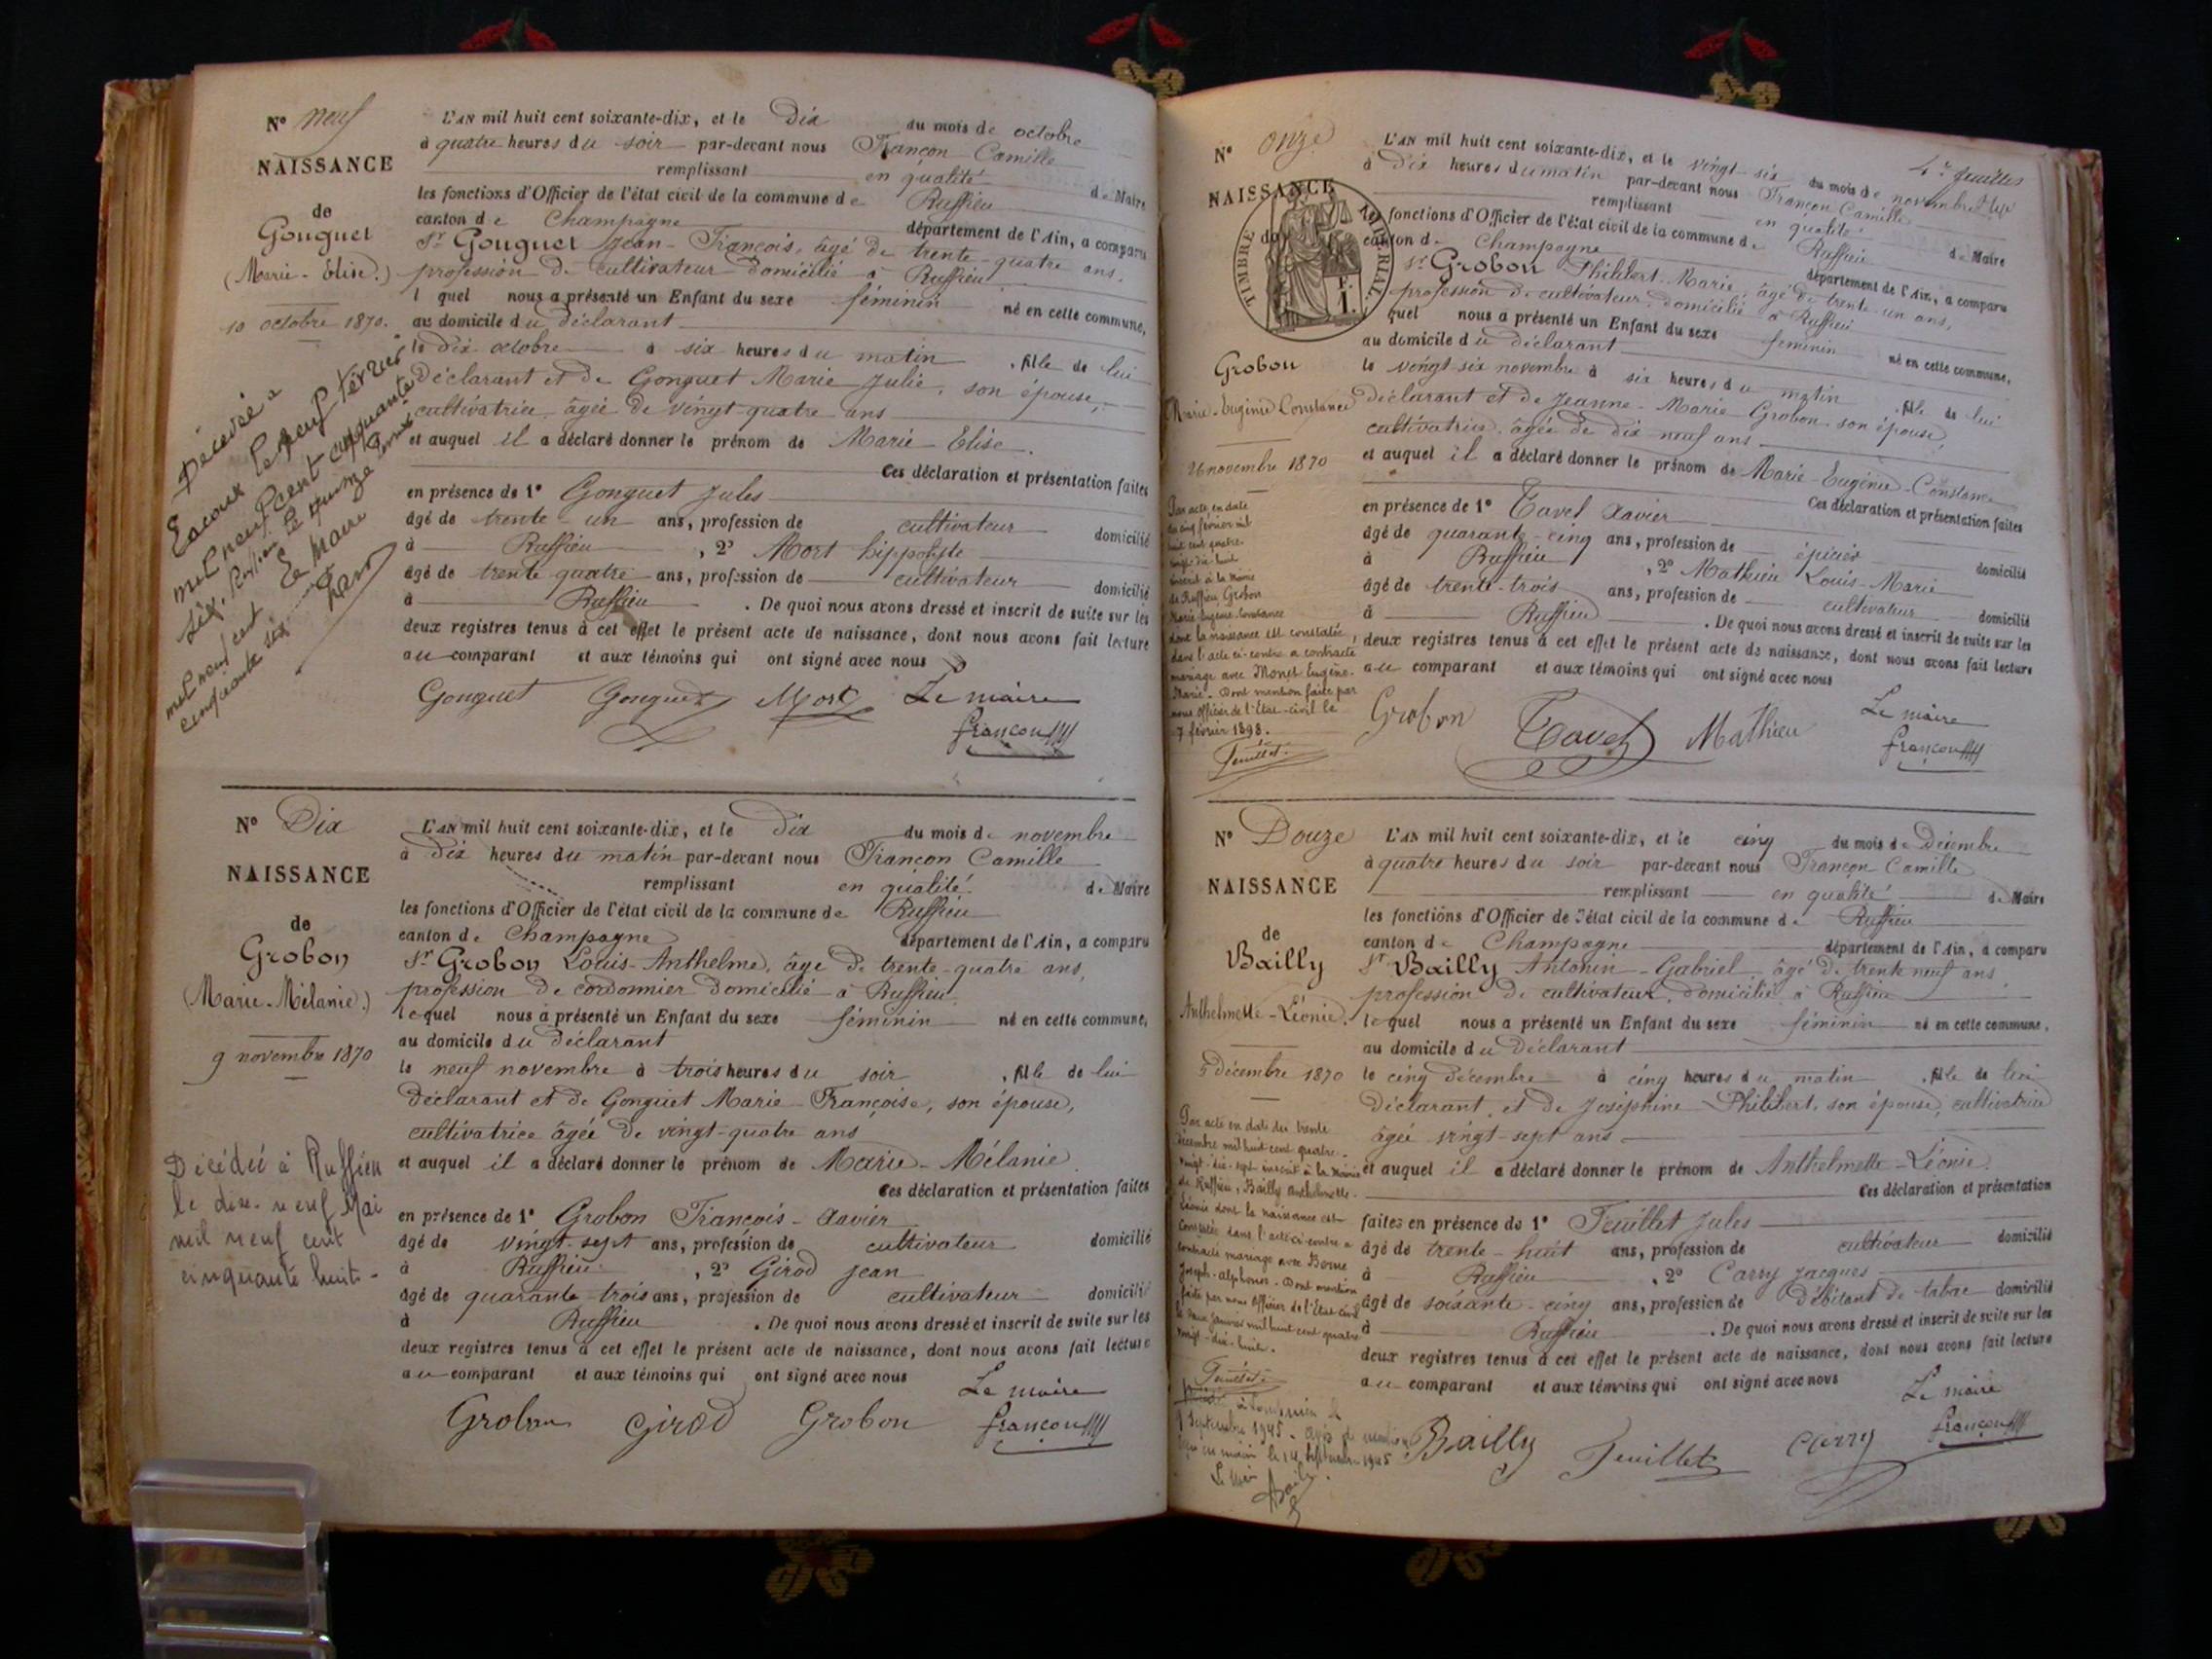 N° neuf
NAISSANCE
de
Gonguet
(Marie-Elise.)
10 octobre 1870.
Décédée à
le neuf février
mil neuf cent cinquante
six. Ruffieu le quinze
mil neuf cent
cinquante six
Le Maire
L'AN mil huit cent soixante-dix, et le Dix du mois de octobre
à quatre heures du soir par-devant nous Françon Camille
remplissant en qualité de Maire
les fonctions d'Officier de l'état civil de la commune de Ruffieu
canton de Champagne département de l'Ain, a comparu
Sr Gonguet Jean-François, âgé de trente-quatre ans,
profession de cultivateur domicilié à Ruffieu
lequel nous a présenté un Enfant du sexe féminin né en cette commune,
au domicile du déclarant
le dix octobre à six heures du matin, fille de lui
Déclarant et de Gonguet Marie Julie, son épouse,
cultivatrice, âgée de vingt-quatre ans
et auquel il a déclaré donner le prénom de Marie Elise.
Ces déclaration et présentation faites
en présence de 1° Gonguet Jules
âgé de trente-un ans, profession de cultivateur domicilié
à Ruffieu, 2° Mort hippolyte
âgé de trente quatre ans, profession de cultivateur domicilié
à Ruffieu. De quoi nous avons dressé et inscrit de suite sur les
deux registres tenus à cet effet le présent acte de naissance, dont nous avons fait lecture
au comparant et aux témoins qui ont signé avec nous
Gonguet Gonguet Mort Le maire
françon
N° Dix
NAISSANCE
de
Grobon
(Marie-Mélanie.)
9 novembre 1870
Décédée à Ruffieu
le dix-neuf Mai
mil neuf cent
cinquante huit-
L'AN mil huit cent soixante-dix, et le Dix du mois de novembre
à dix heures du matin par-devant nous Françon Camille
remplissant en qualité de Maire
les fonctions d'Officier de l'état civil de la commune de Ruffieu
canton de Champagne département de l'Ain, a comparu
Sr Grobon Louis-Anthelme, âgé de trente-quatre ans,
profession de cordonnier domicilié à Ruffieu.
lequel nous a présenté un Enfant du sexe féminin né en cette commune,
au domicile du déclarant
le neuf novembre à trois heures du soir, fille de lui
Déclarant et de Gonguet Marie-Françoise, son épouse,
cultivatrice âgée de vingt-quatre ans
et auquel il a déclaré donner le prénom de Marie-Mélanie.
Ces déclaration et présentation faites
en présence de 1° Grobon François-Xavier
âgé de vingt-sept ans, profession de cultivateur domicilié
à Ruffieu, 2° Girod Jean
âgé de quarante-trois ans, profession de cultivateur domicilié
à Ruffieu. De quoi nous avons dressé et inscrit de suite sur les
deux registres tenus à cet effet le présent acte de naissance, dont nous avons fait lecture
au comparant et aux témoins qui ont signé avec nous
Grobon Girod Grobon Le maire
françon
4e feuillet
N° onze
NAISSANCE
de
TIMBRE IMPÉRIAL
1 F.
Grobon
Marie-Eugénie Constance
26 novembre 1870
Par acte, en date
du cinq février mil
huit cent quatre-
vingt-dix-huit
inscrit à la Mairie
de Ruffieu Grobon
Marie Eugénie Constance
dont la naissance est constatée
dans l'acte ci-contre a contracté
mariage avec Monet Eugène-
Marie. Dont mention faite par
nous Officier de l'Etat-civil le
7 février 1898.
Feuillet
L'AN mil huit cent soixante-dix, et le vingt-six du mois de novembre
à dix heures du matin par-devant nous Françon Camille
remplissant en qualité de Maire
les fonctions d'Officier de l'état civil de la commune de Ruffieu
canton de Champagne département de l'Ain, a comparu
Sr Grobon Philibert-Marie, âgé de trente-un ans,
profession de cultivateur domicilié à Ruffieu
lequel nous a présenté un Enfant du sexe féminin né en cette commune,
au domicile du déclarant
le vingt six novembre à six heures du matin, fille de lui
déclarant et de Jeanne-Marie Grobon son épouse,
cultivatrice, âgée de dix-neuf ans
et auquel il a déclaré donner le prénom de Marie-Eugénie-Constance
Ces déclaration et présentation faites
en présence de 1° Tavel Xavier
âgé de quarante-cinq ans, profession de épicier domicilié
à Ruffieu, 2° Mathieu Louis-Marie
âgé de trente-trois ans, profession de cultivateur domicilié
à Ruffieu. De quoi nous avons dressé et inscrit de suite sur les
deux registres tenus à cet effet le présent acte de naissance, dont nous avons fait lecture
au comparant et aux témoins qui ont signé avec nous
Grobon Tavel Mathieu Le maire
françon
N° Douze
NAISSANCE
de
Bailly
Anthelmette-Léonie.
5 décembre 1870
Par acte en date du trente
décembre mil huit cent quatre-
vingt-dix-sept inscrit à la Mairie
de Ruffieu, Bailly Anthelmette-
Léonie dont la naissance est
constatée dans l'acte ci-contre a
contracté mariage avec
Joseph-Alphonse. Dont mention
faite par nous Officier de l'Etat-civil
le janvier mil huit cent quatre
vingt-dix-huit.
Feuillet
Septembre 1945. Avis de mention
en mairie le 14 Septembre 1945
Le Maire
L'AN mil huit cent soixante-dix, et le cinq du mois de Décembre
à quatre heures du soir par-devant nous Françon Camille
remplissant en qualité de Maire
les fonctions d'Officier de l'état civil de la commune de Ruffieu
canton de Champagne département de l'Ain, a comparu
Sr Bailly Antonin-Gabriel, âgé de trente neuf ans,
profession de cultivateur, domicilié à Ruffieu
lequel nous a présenté un Enfant du sexe féminin né en cette commune,
au domicile du déclarant
le cinq décembre à cinq heures du matin, fille de lui
Déclarant, et de Joséphine Philibert, son épouse, cultivatrice
âgée vingt-sept ans
et auquel il a déclaré donner le prénom de Anthelmette-Léonie.
Ces déclaration et présentation
faites en présence de 1° Feuillet Jules
âgé de trente-huit ans, profession de cultivateur domicilié
à Ruffieu, 2° Carry Jacques
âgé de soixante-cinq ans, profession de Débitant de tabac domicilié
à Ruffieu. De quoi nous avons dressé et inscrit de suite sur les
deux registres tenus à cet effet le présent acte de naissance, dont nous avons fait lecture
au comparant et aux témoins qui ont signé avec nous
Bailly Feuillet Carry Le maire
françon